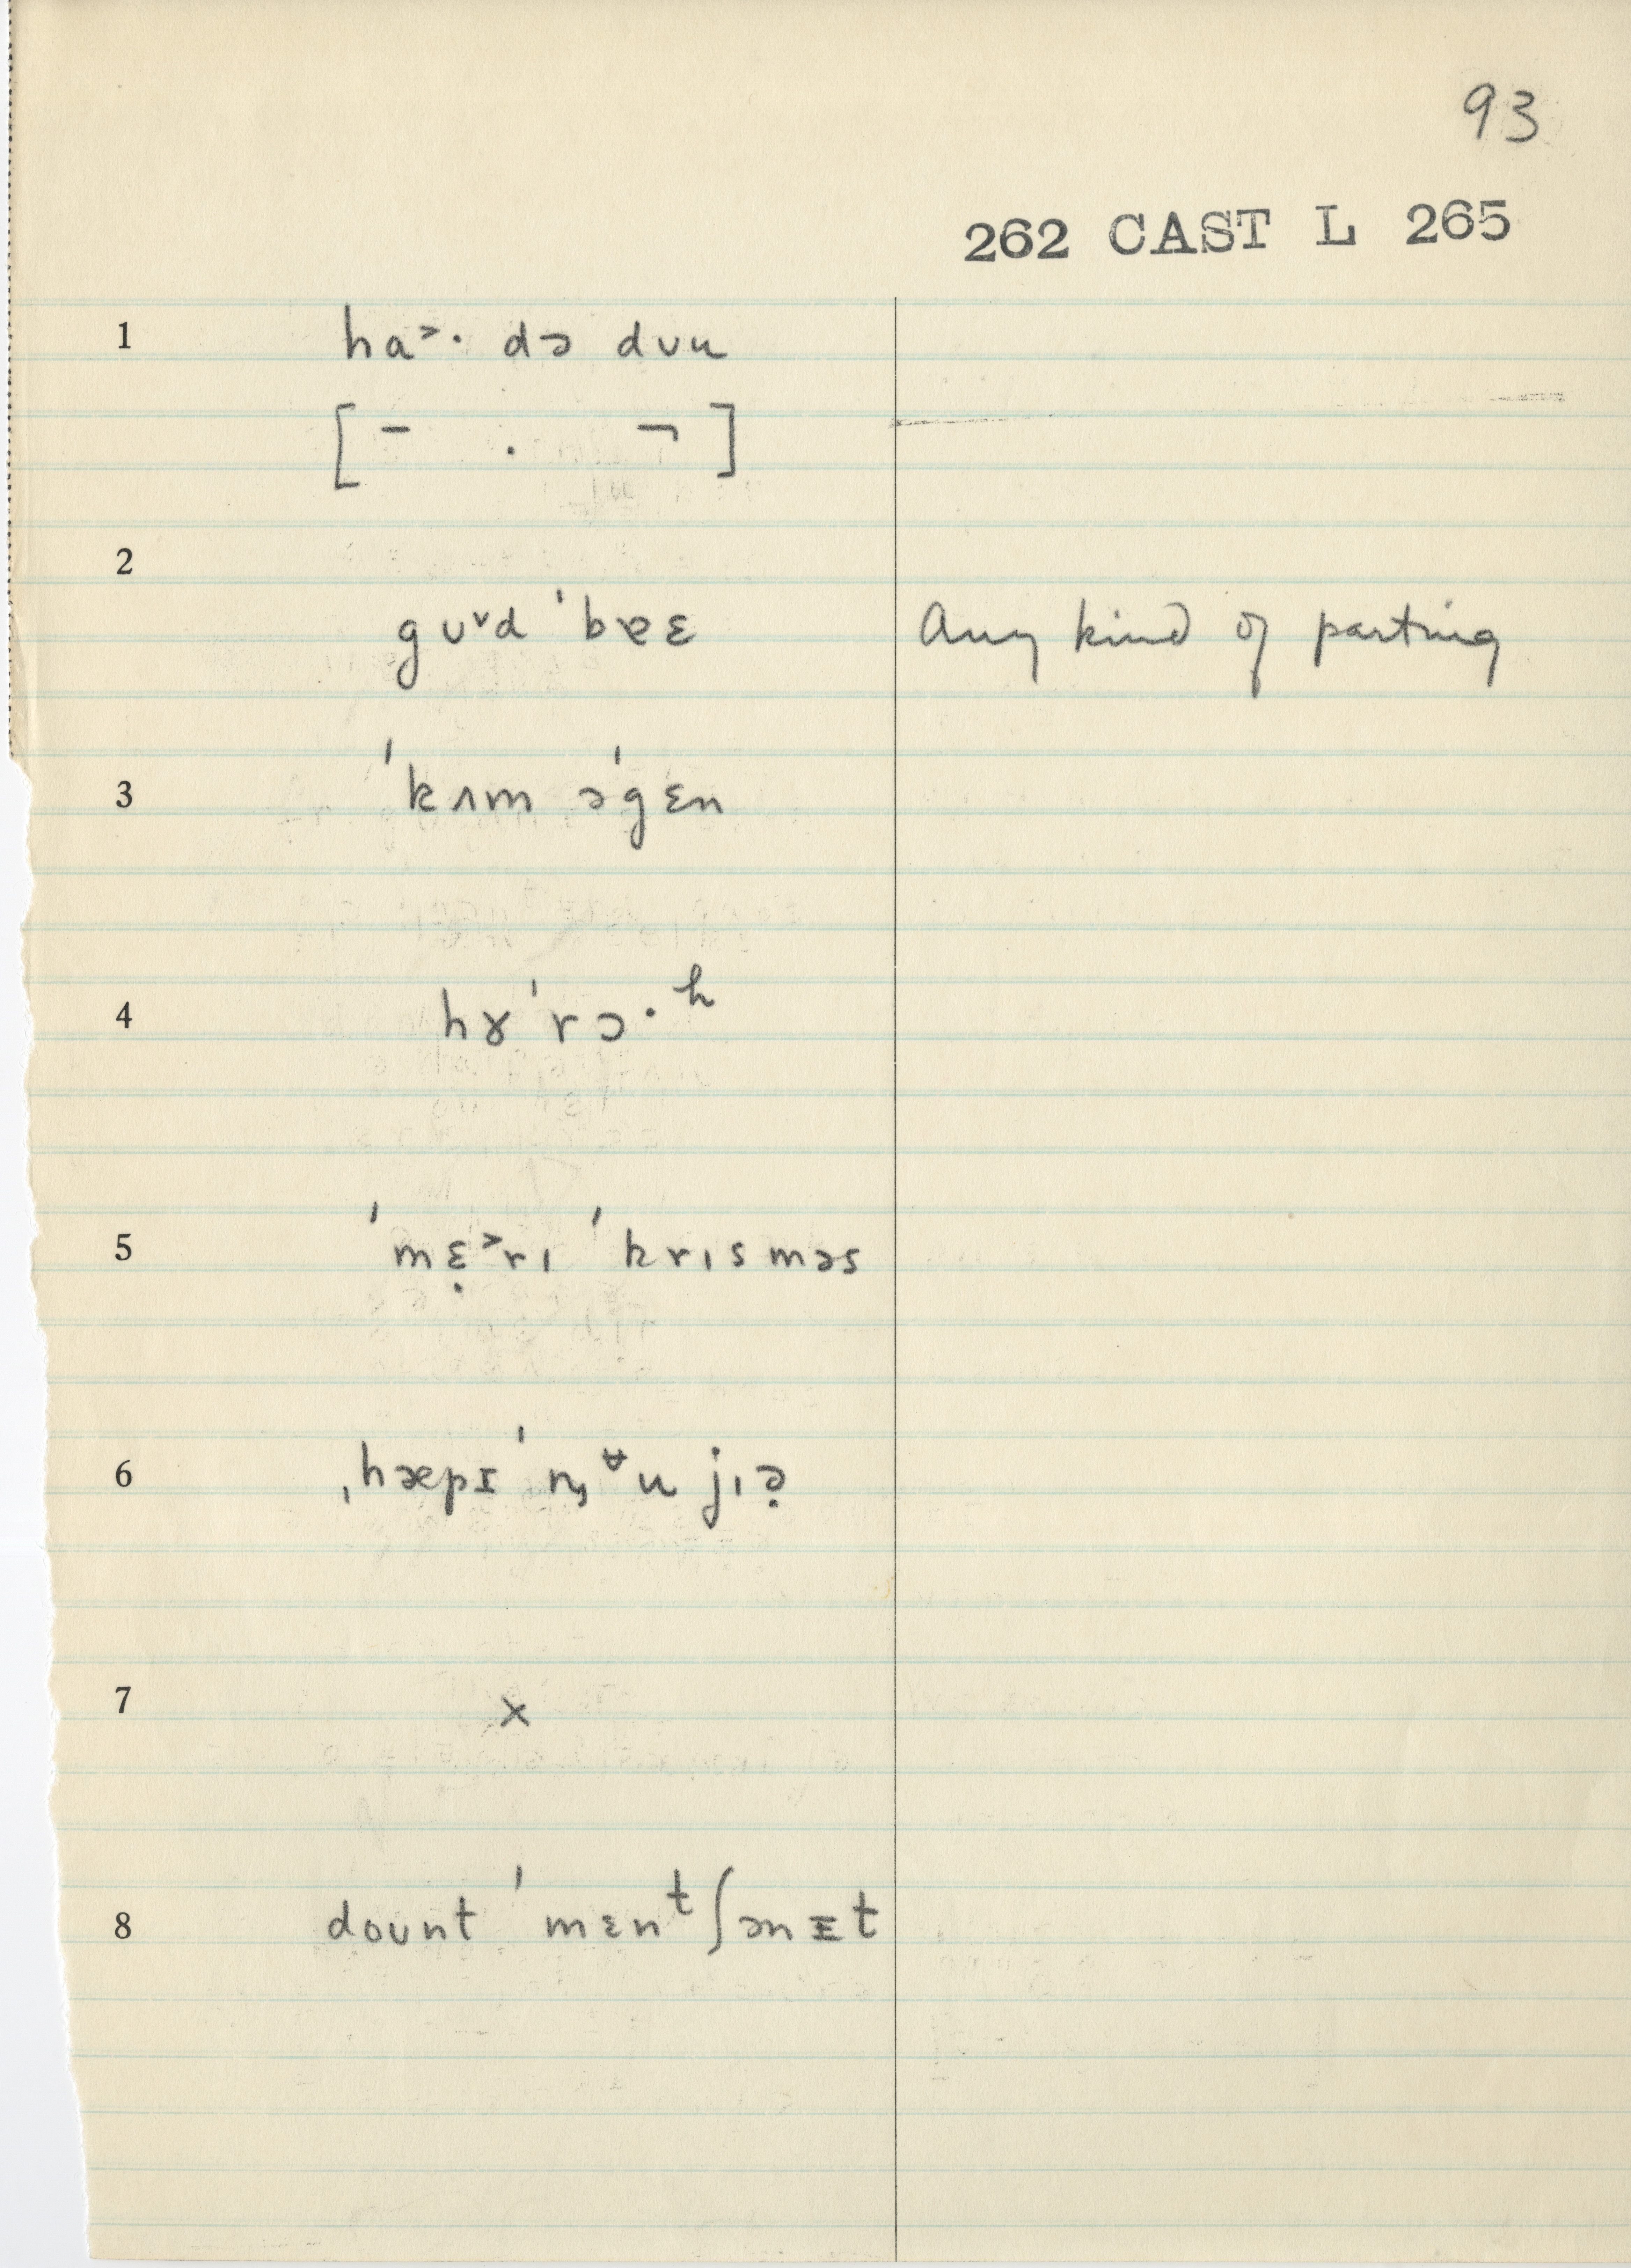 93
262 CAST L 265
1 ha˃· də dʊu
[ ‾ . ¬ ]
2
gʊ˅d ˈbɐɛ Any kind of parting
3 ˈkʌm əˈgɛn
4 hɤˈrɔ·ʰ
5 ˈmɛ̣˃rɪ ˈkrɪsməs
6 ˌhæpɪ ˈn ᵿu jɪə̣
7 x
8 doʊnt ˈmɛnᵗʃənɪt